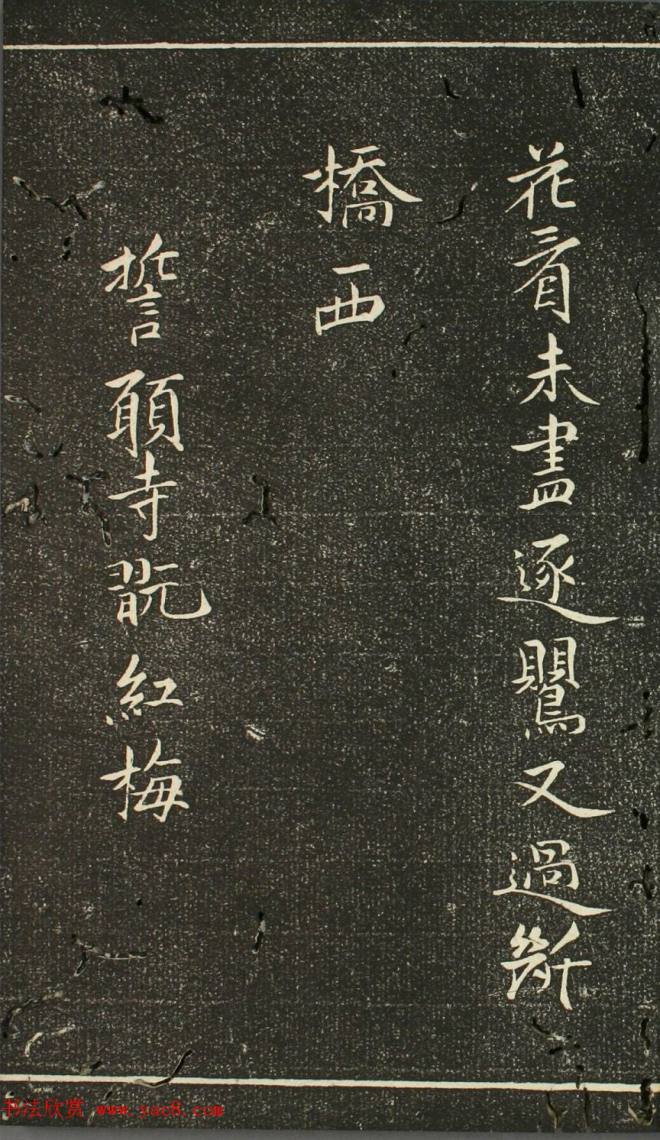 花看未盡逐鸎又過斷
橋西
誓願寺翫紅梅
书法欣赏 www.yac8.com